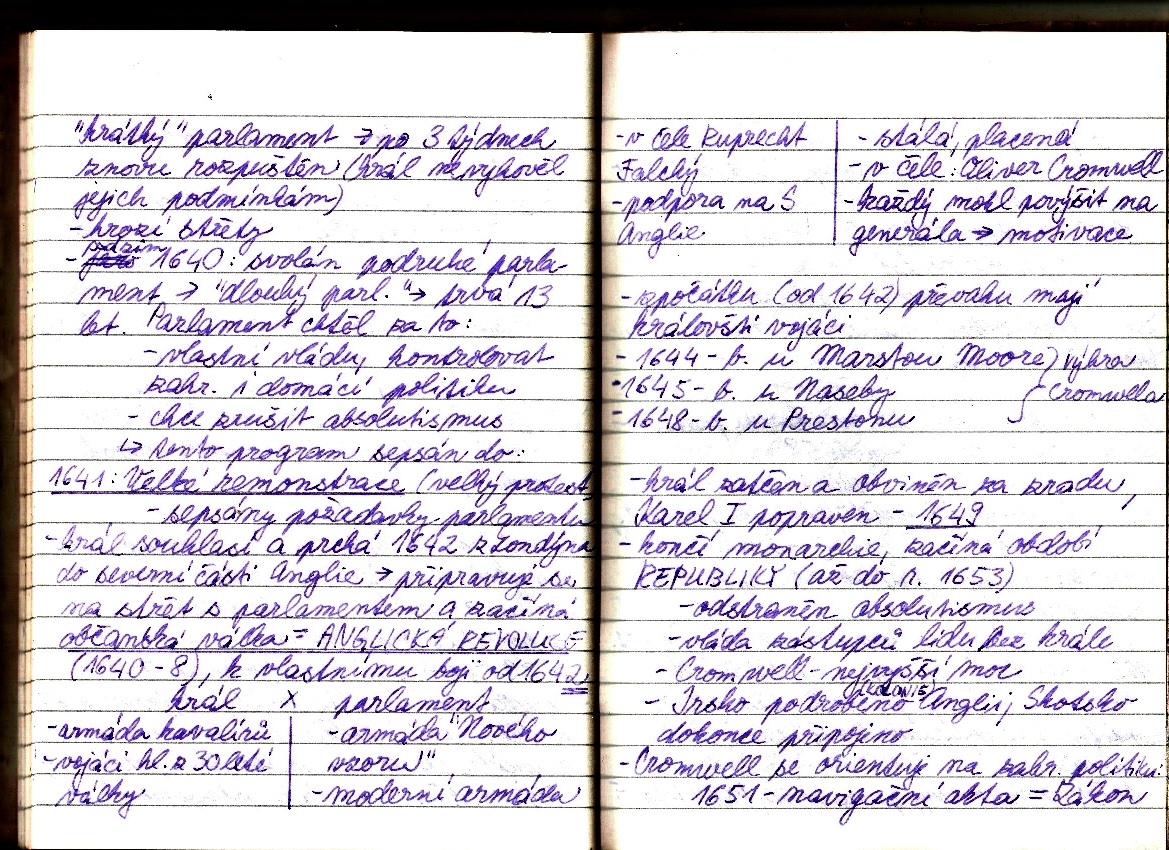 "krátký" parlament → po 3 týdnech
znovu rozpuštěn (král nevyhověl
jejich podmínkám)
- hrozí střety
- podzim 1640: svolán podruhé parla-
ment → "dlouhý parl." → trvá 13
let. Parlament chtěl za to:
- vlastní vládu, kontrolovat
zahr. i domácí politiku
- chce zrušit absolutismus
↳ tento program sepsán do:
1641: Velké remonstrace (velký protest
- sepsány požadavky parlamentu
- král souhlasí a prchá 1642 z Londýna
do severní části Anglie → připravuje se
na střet s parlamentem a začíná
občanská válka = ANGLICKÁ REVOLUCE
(1640-8), k vlastnímu boji od 1642
král X parlament
- armáda kavalírů
- vojáci hl. z 30leté
války
- armáda "Nového
vzoru"
- moderní armáda
- v čele Ruprecht
Falcký
- podpora na S
Anglie
- stálá, placená
- v čele: Oliver Cromwell
- každý mohl povýšit na
generála → motivace
- zpočátku (od 1642) převahu mají
královští vojáci
- 1644 - b. u Marston Moore } výhra
- 1645 - b. u Naseby } Cromwella
- 1648 - b. u Prestonu
- král zatčen a obviněn za zradu,
Karel I popraven - 1649
- končí monarchie, začíná období
REPUBLIKY (až do r. 1653)
- odstraněn absolutismus
- vláda zástupců lidu bez krále
- Cromwell - nejvyšší moc
- Irsko podrobeno Anglii, Skotsko
dokonce připojeno
- Cromwell se orientuj na zahr. politiku:
1651 - navigační akta = Zákon